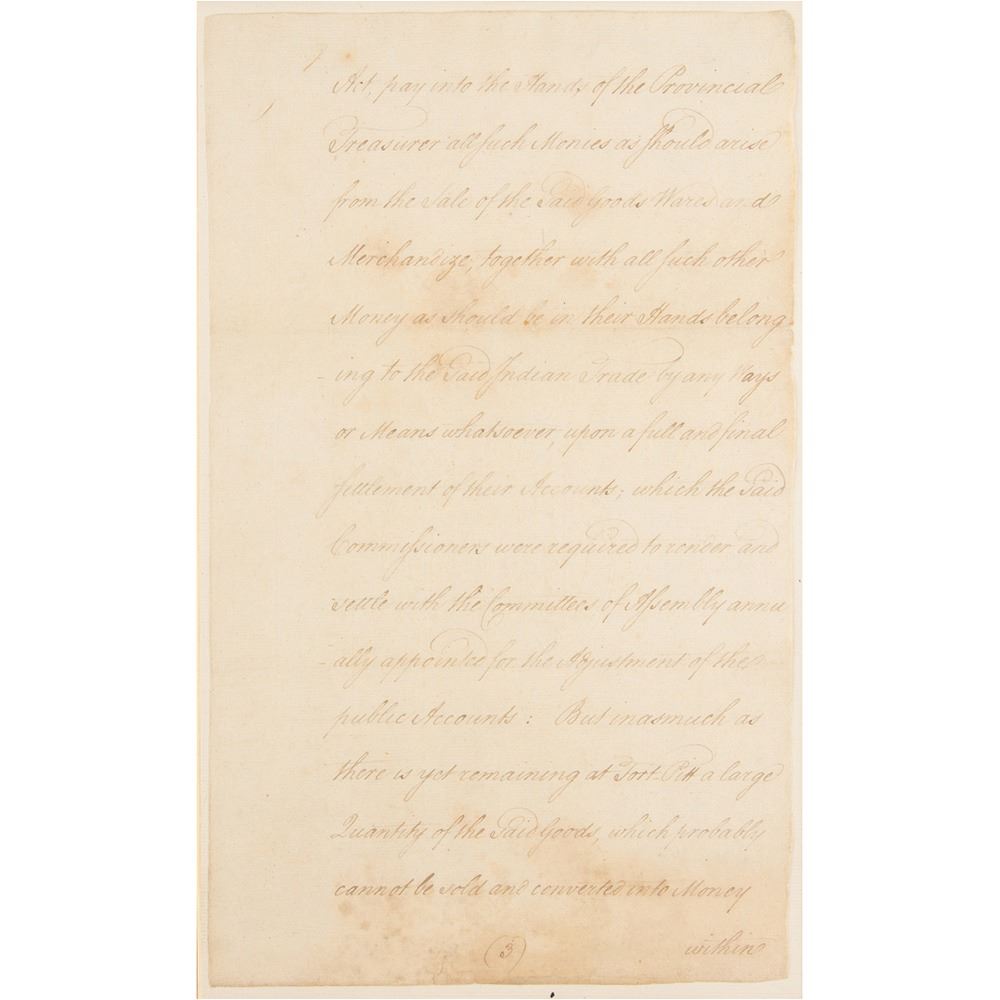 Act, pay into the Hands of the Provincial
Treasurer all such Monies as should arise
from the Sale of the Said Goods Wares and
Merchandize, together with all such other
Money as should be in their Hands belong
-ing to the Said Indian Trade by any Ways
or Means whatsoever, upon a full and final
settlement of their Accounts; which the Said
Commissioners were required to render and
settle with the Committees of Assembly annu
-ally appointed for the Adjustment of the
public Accounts: But inasmuch as
there is yet remaining at Fort-Pitt a large
Quantity of the Said Goods, which probably
cannot be sold and converted into Money
(3) within